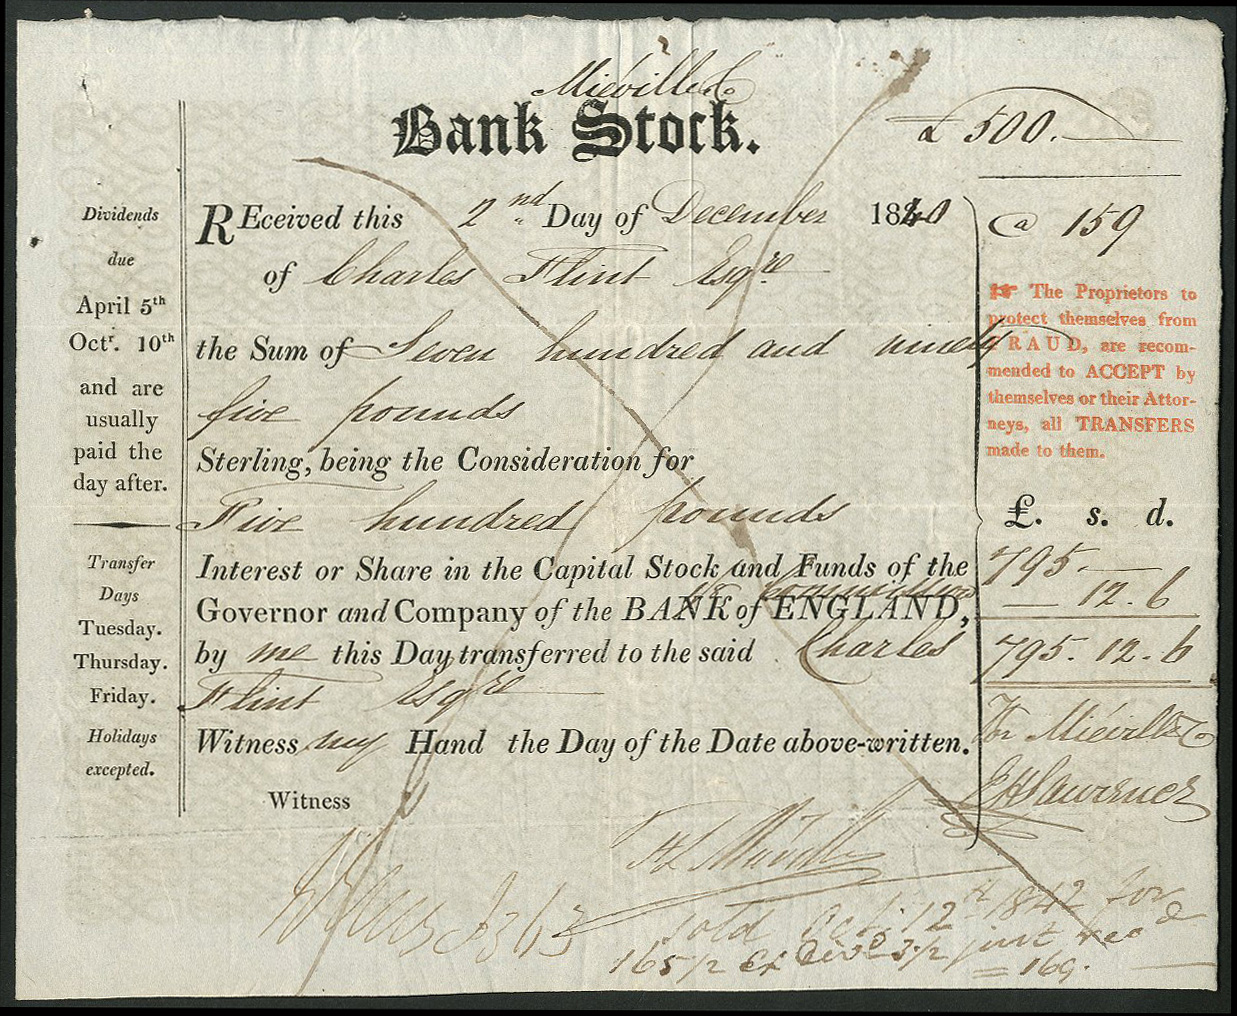 Miéville &Co
Bank Stock.
£ 500.
Dividends
due
April 5th
Octr. 10th
and are
usually
paid the
day after.
Transfer
Days
Tuesday.
Thursday.
Friday.
Holidays
excepted.
REceived this 2nd Day of December 1840
of Charles Flint Esqre
the Sum of Seven hundred and ninety
five pounds
Sterling, being the Consideration for
Five hundred pounds
Interest or Share in the Capital Stock and Funds of the
Governor and Company of the BANK of ENGLAND,
by me this Day transferred to the said Charles
Flint Esqre
Witness my Hand the Day of the Date above-written.
Witness
@ 159
☞ The Proprietors to
protect themselves from
FRAUD, are recom-
mended to ACCEPT by
themselves or their Attor-
neys, all TRANSFERS
made to them.
£. s. d.
795.
Commission
12.6
795.12.6
For Miéville &Co
sold Oct. 12th 1842 for
165 1/2 Ex Divd 3 1/2 just recd
= 169.